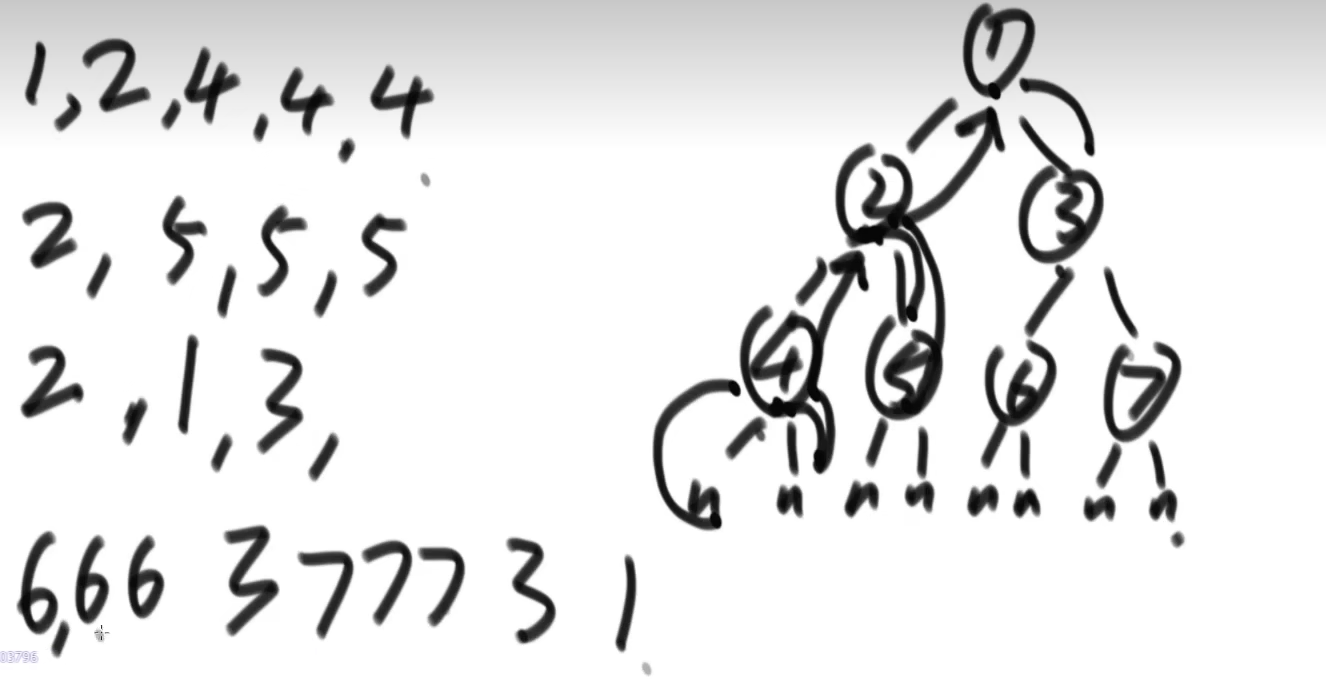 1,2,4,4,4
2,5,5,5
2,1,3,
6,66 3 777 3 1
1
2 3
4 5 6 7
n n n n n n n n
03796